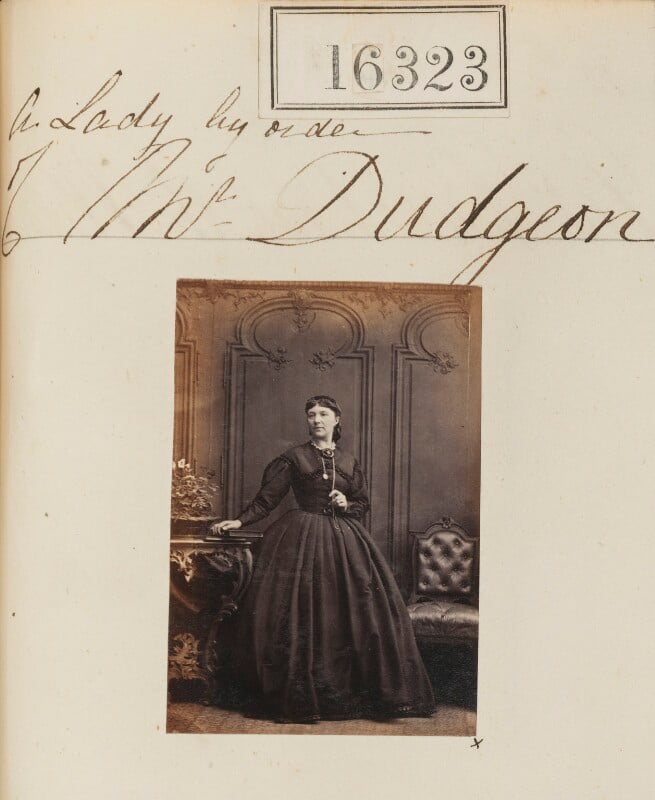 16323
A Lady by order
of Mr Dudgeon
x